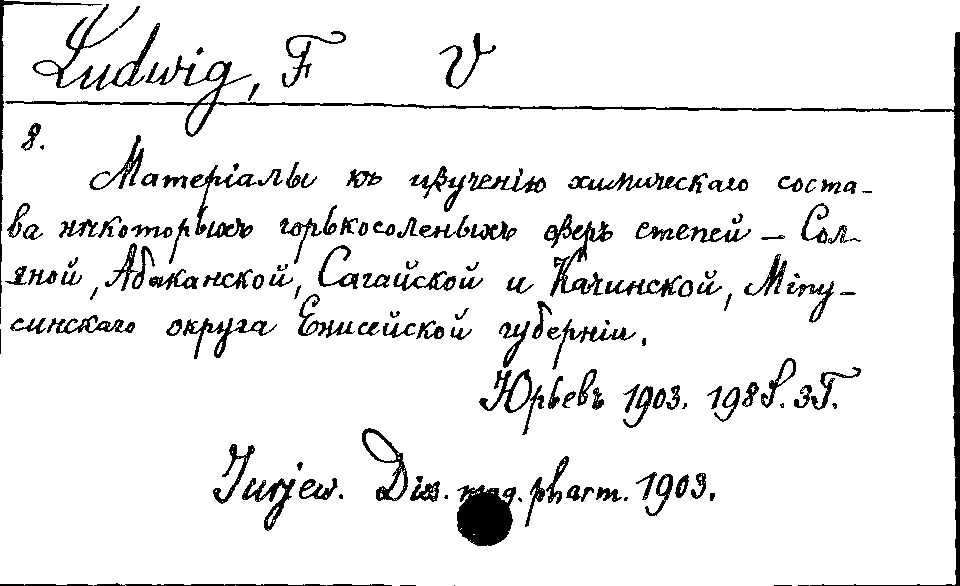 Ludwig, F V
8.
Матеріалы къ изученію химическаго соста-
ва нѣкоторыхъ горькосоленыхъ озеръ степей – Сол-
яной, Абаканской, Сагайской и Качинской, Мину-
синскаго округа Енисейской губерніи.
Юрьевъ 1903. 198 S. 3 T.
Jurjew. Diss. mag. pharm. 1903.